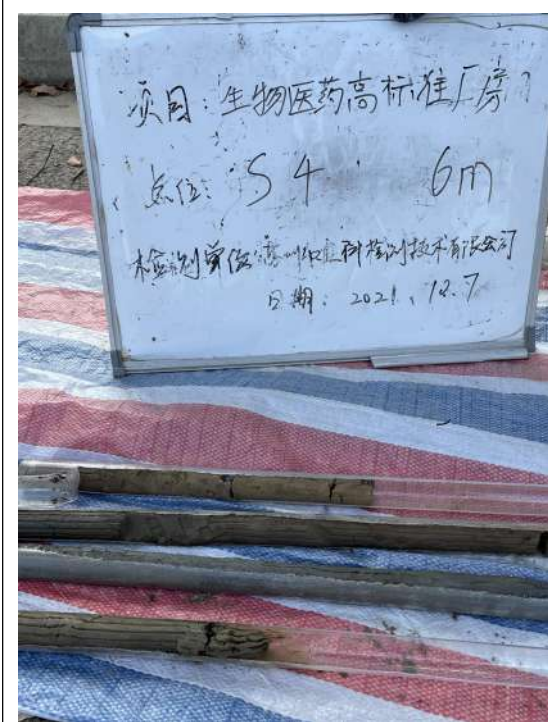 项目：生物医药高标准厂房
点位：S4 6m
检测单位：苏州 科检测技术有限公司
日期：2021.12.7